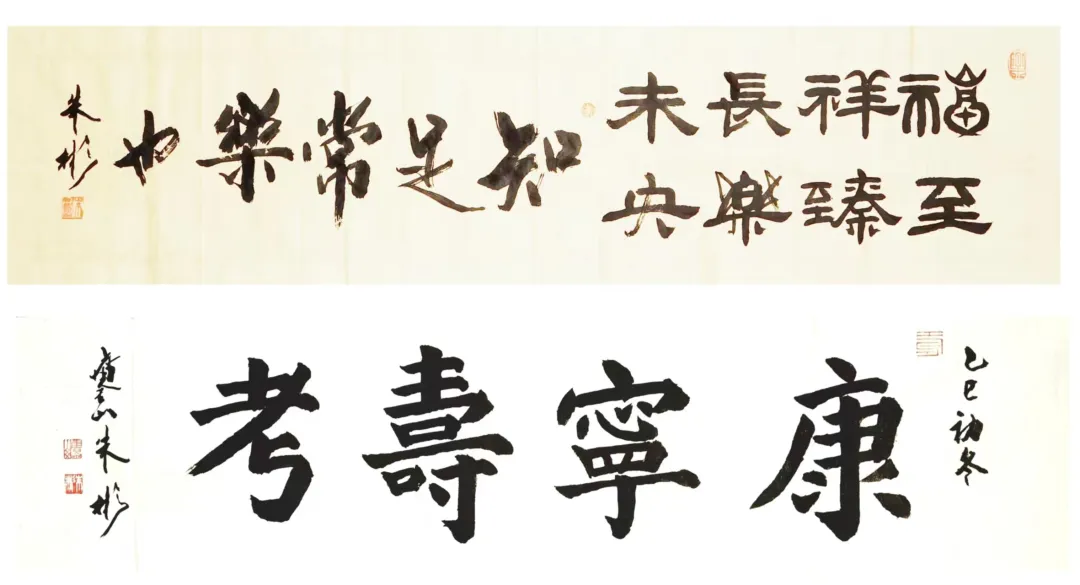 福至
祥臻
長樂
未央
知足常樂也
朱彬
乙巳初冬
康寧壽考
山朱彬